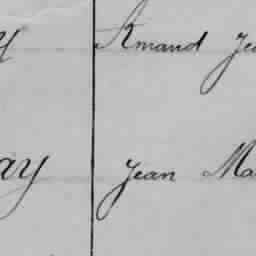 y Amand Je
ay Jean Ma